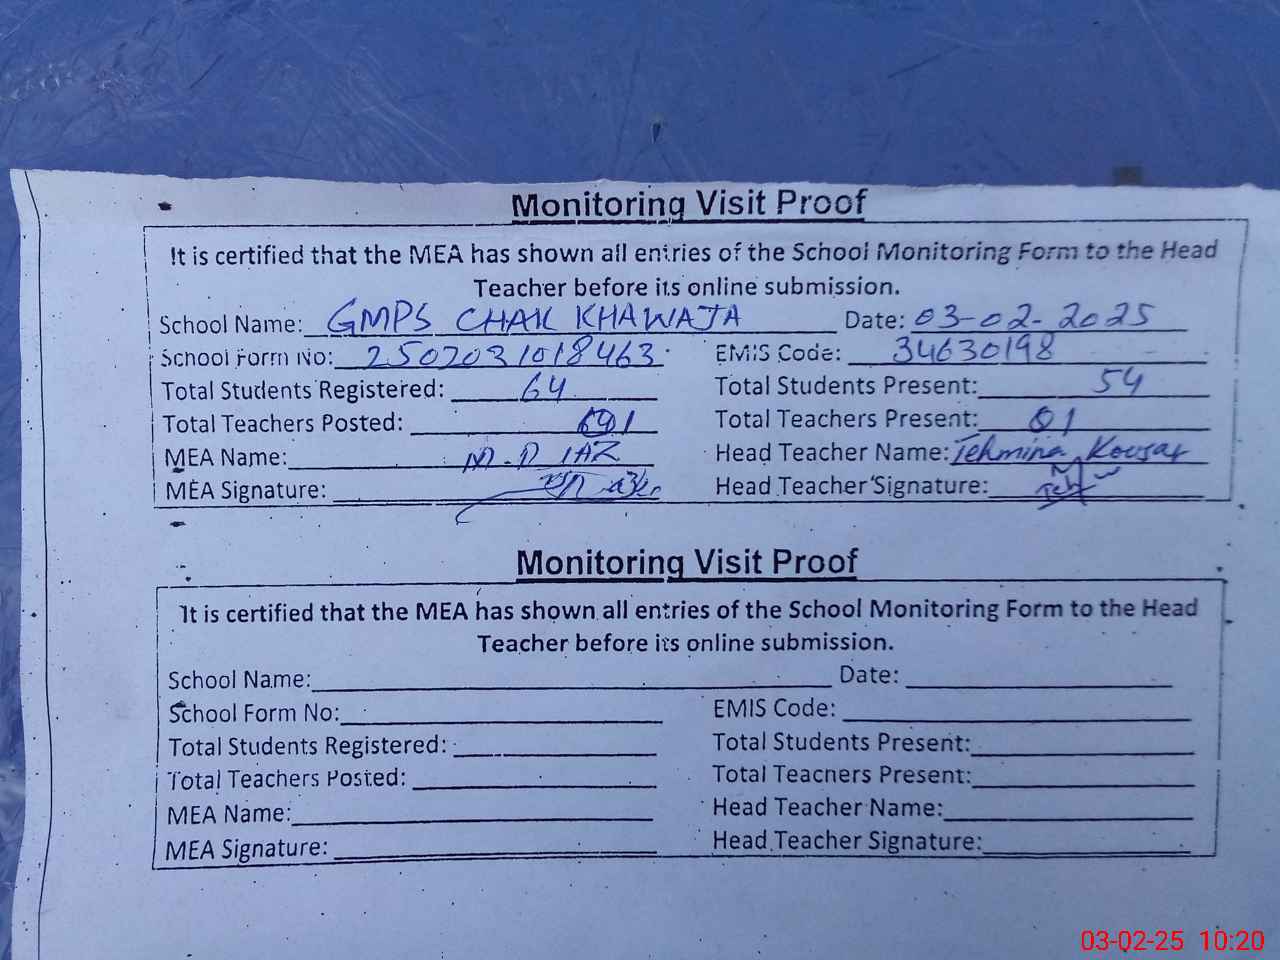 Monitoring Visit Proof
It is certified that the MEA has shown all entries of the School Monitoring Form to the Head
Teacher before its online submission.
School Name: GMPS CHAK KHAWAJA Date: 03-02-2025
School Form No: 2502031018463 EMIS Code: 34630198
Total Students Registered: 64 Total Students Present: 54
Total Teachers Posted: 01 Total Teachers Present: 01
MEA Name: Head Teacher Name: Tehmina Kousar
MEA Signature: Head Teacher Signature:
Monitoring Visit Proof
It is certified that the MEA has shown all entries of the School Monitoring Form to the Head
Teacher before its online submission.
School Name: Date:
School Form No: EMIS Code:
Total Students Registered: Total Students Present:
Total Teachers Posted: Total Teachers Present:
MEA Name: Head Teacher Name:
MEA Signature: Head Teacher Signature:
03-02-25 10:20